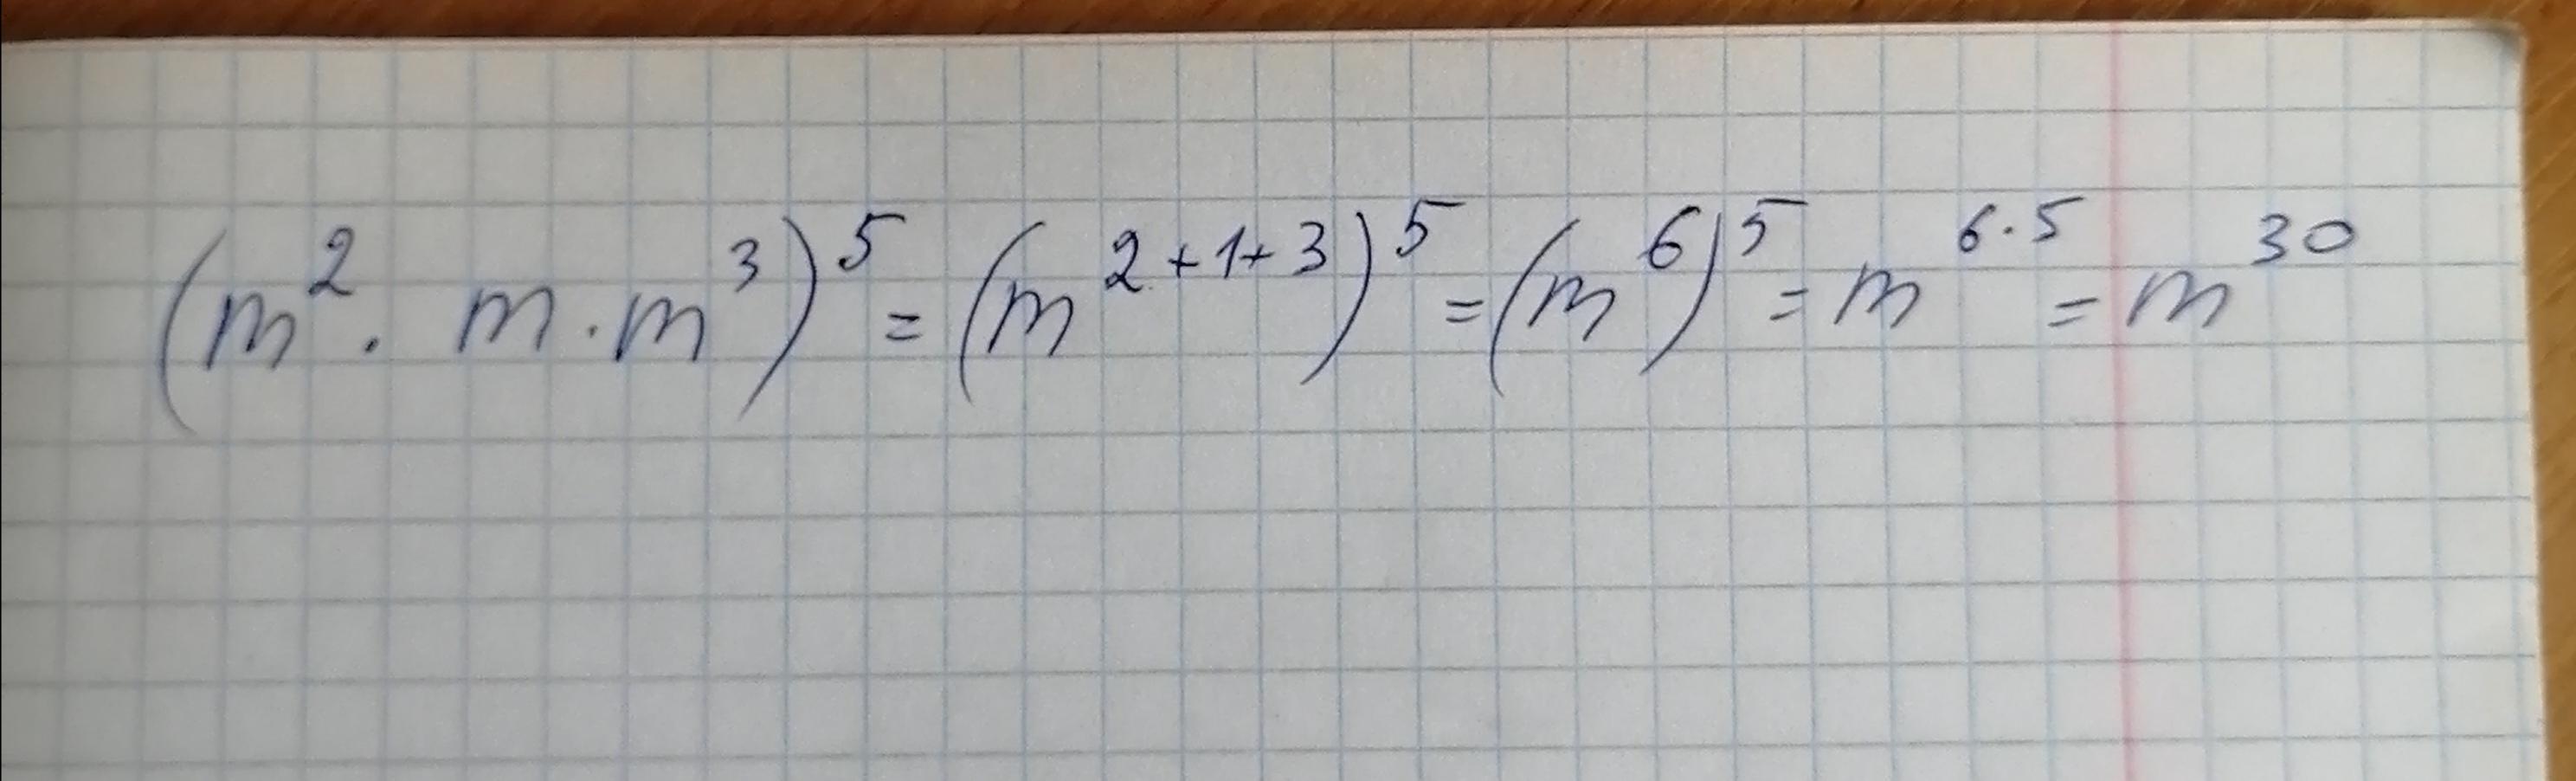 (m²· m·m³)⁵ = (m²⁺¹⁺³)⁵ = (m⁶)⁵ = m⁶˙⁵ = m³⁰